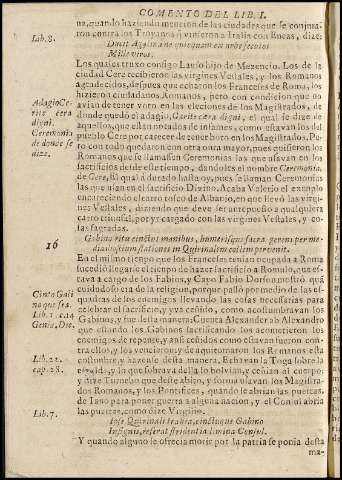 COMENTO DEL LIB. I.
na, quando haziendo mencion de las ciudades que se conjura-
Lib. 8.
ron contra los Troyanos q̃ vinieron a Italia con Eneas, dize:
Ducit Agyllina nequicquam ex urbe secutos
Mille viros.
Los quales truxo consigo Lauso hijo de Mezencio. Los de la
ciudad Cere recibieron las virgines Vestales, y los Romanos
agradecidos, despues que echaron los Franceses de Roma, los
hizieron ciudadanos Romanos, pero con condicion que no
Adagio Ce-
rite cera
digni.
Ceremonia
de donde se
dize.
avian de tener voto en las elecciones de los Magistrados, de
donde quedó el adagio, Cerite cera digni, el qual se dize de
aquellos, que estàn notados de infames, como estavan los del
pueblo Cere por carecer de tener boto en los Magistrados. Pe-
ro con todo quedaron con otra onra mayor, pues quisieron los
Romanos que se llamassen Ceremonias las que usavan en los
sacrificios desde este tiempo, dandoles el nombre Ceremonia,
de Cere, el qual à durado hasta oy, pues se llaman Ceremonias
las que usan en el sacrificio Divino. Acaba Valerio el exemplo
encareciendo el carro tosco de Albanio, en que llevó las virgines
Vestales, diziendo que deve ser antepuesto a qualquiera
carro triunfal, por yr cargado con las virgines Vestales, y co-
sas sagradas.
16
Gabino ritu cinctus manibus, humerisque sacra gerens per me-
dias hostium stationes in Quirinalem collem pervenit.
En el mismo tiempo que los Franceses tenian ocupada a Roma
sucedió llegarse el tiempo de hazer sacrificio a Romulo, que es-
tava a cargo de los Fabios, y Cayo Fabio Dorson mostró quã
cuidadoso era de la religion, porque passò por medio de las es-
quadras de los enemigos llevando las cosas necessarias para
Cinto Gabi
no que sea.
celebrar el sacrificio, y va ceñido, como acostumbravan los
Gabinos, y fue desta manera: Cuenta Alexander ab Alexandro
Lib. 5. ca.
Genia, Die.
que estando los Gabinos sacrificando los acometieron los
enemigos de repente, y ansi ceñidos como estavan fueron con-
tra ellos, y los vencieron, y de aqui tomaron los Romanos esta
Lib. 22.
cap. 28.
costumbre, y hazen de desta manera, Echavan la Toga sobre la
y lo que sobrava della lo bolvian, y ceñian al cuerpo,
y dize Turnebo que deste abito, y forma usavan los Magistra-
dos Romanos, y los Pontifices, quando le abrian las puertas
de Iano para poner guerra a alguna nacion, y el Consul abria
Lib. 7.
las puertas, como dize Virgilio.
Ipse Quirinali trabea, cinctuque Gabino
Insignis, reserat stridentia limina Consul.
Y quando alguno se ofrecia morir por la patria se ponia desta
ma-